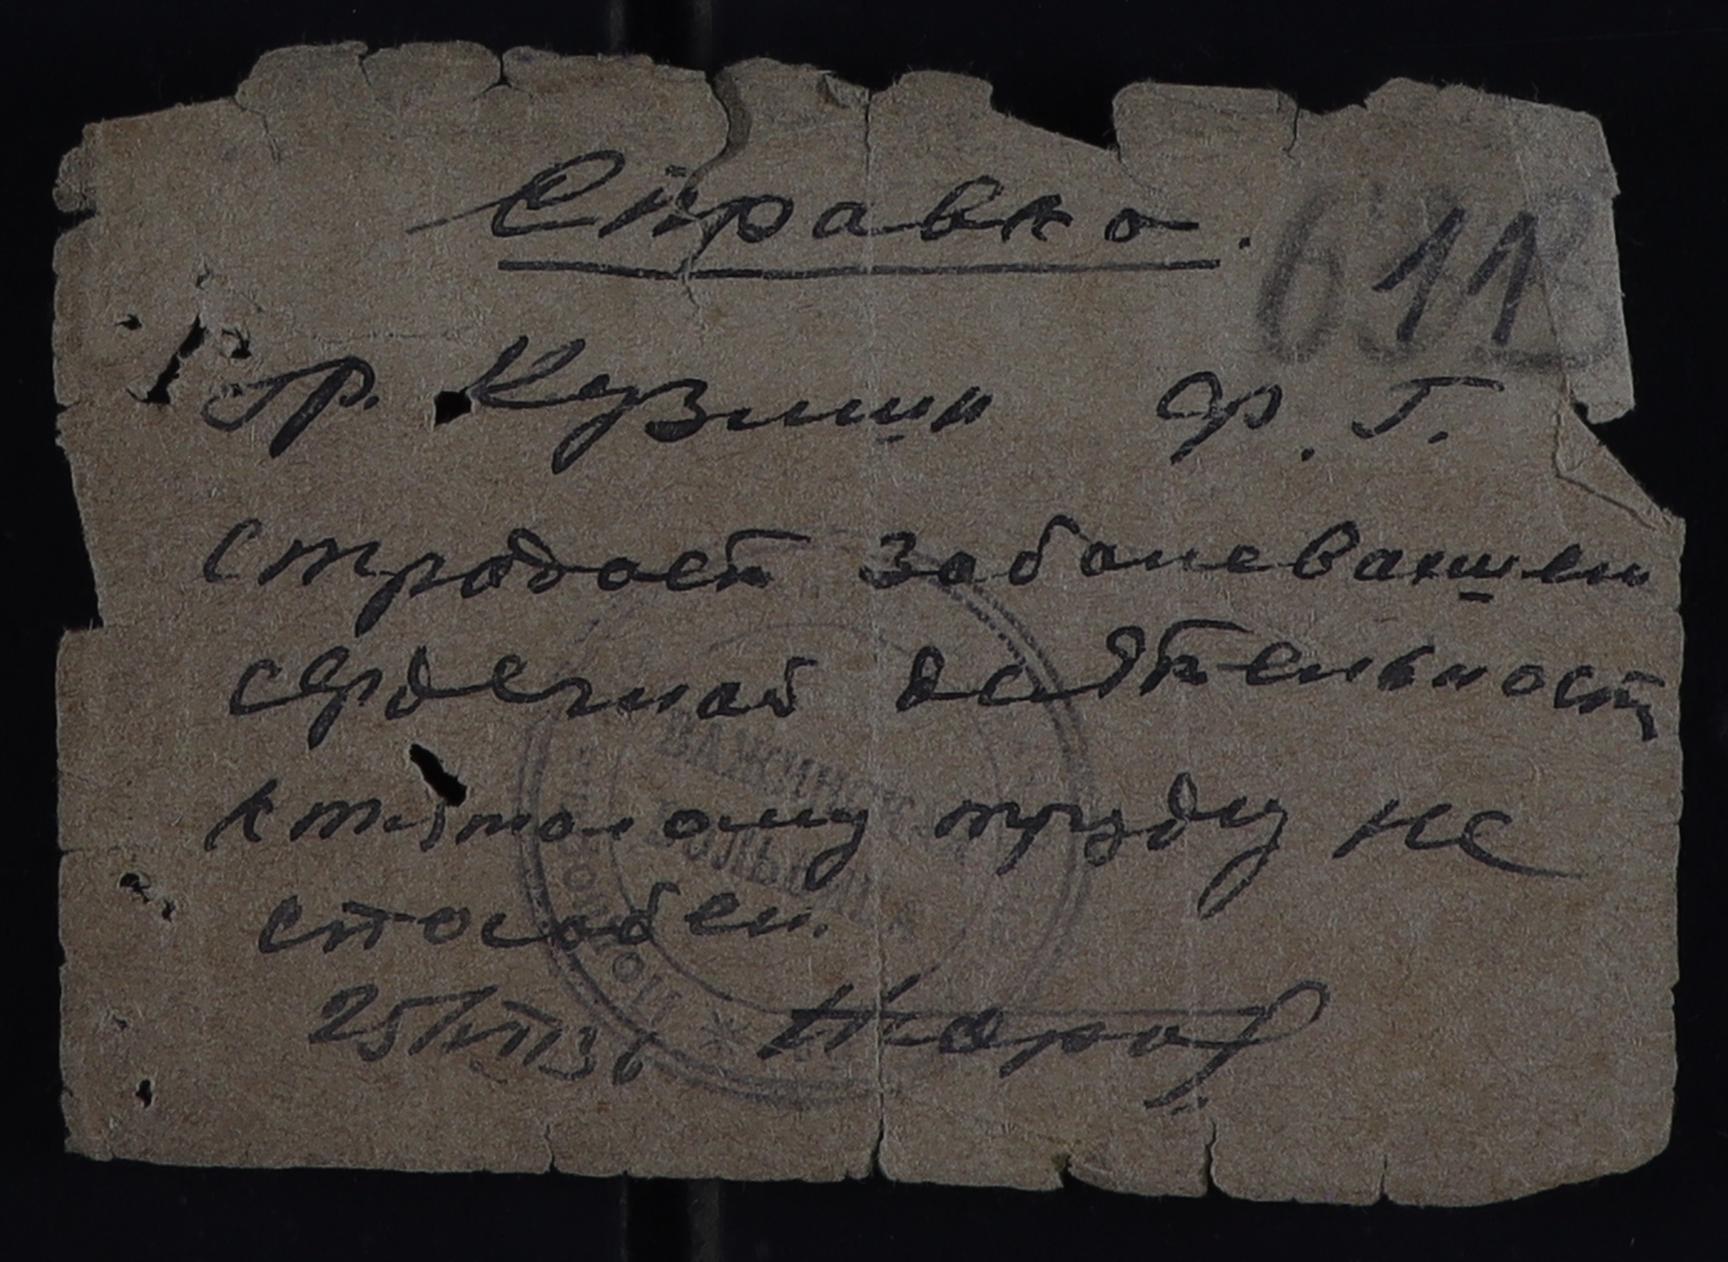 Справка.
611
гр. Кузмин Ф. Г.
страдает заболеванием
сердечной деятельност
к тяжолому труду не
способен.
ВАЖИНСК
БОЛЬНИЦА